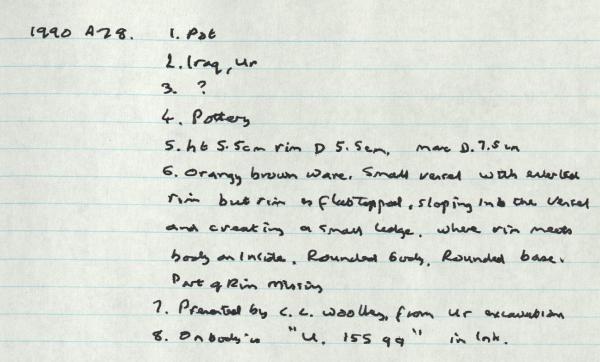 1990 A28. 1. Pot
2. Iraq, Ur
3. ?
4. Pottery
5. ht 5.5cm rim D 5.5cm, max D. 7.5cm
6. Orangy brown ware. Small vessel with everted
rim but rim is flat topped, sloping into the vessel
and creating a small ledge, where rim meets
body on inside. Rounded body. Rounded base.
Part of Rim missing
7. Presented by C. L. Woolley, from Ur excavations
8. On body is "U. 155 qq" in Ink.